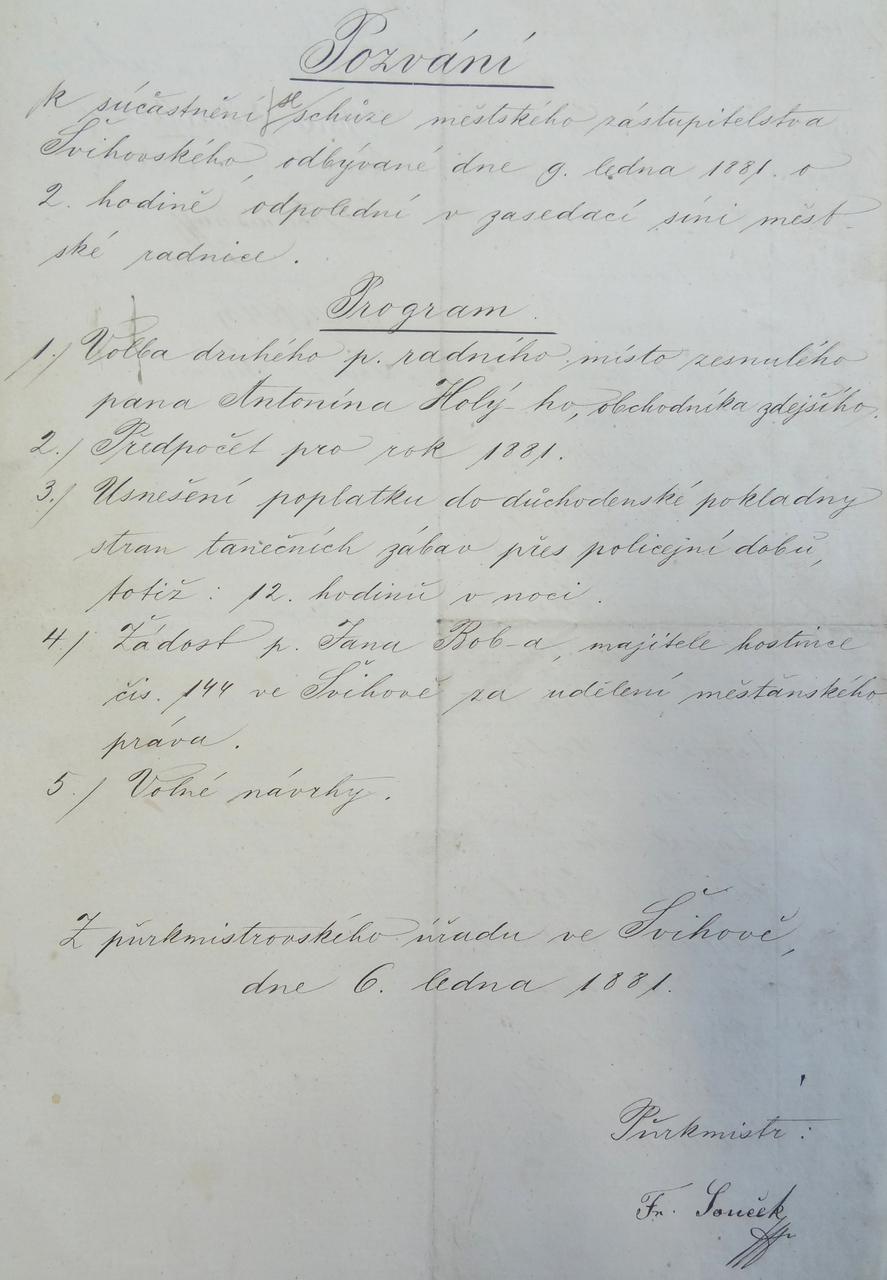 Pozvání
k súčastnění se schůze městského zástupitelstva
Švihovského, odbývané dne 9. ledna 1881. o
2. hodině odpolední v zasedací síni měst-
ské radnice.
Program.
1./ Volba druhého p. radního místo zesnulého
pana Antonína Holý-ho, obchodníka zdejšího.
2./ Předpočet pro rok 1881.
3./ Usnešení poplatku do důchodenské pokladny
stran tanečních zábav přes policejní dobu,
totiž: 12. hodinu v noci.
4./ Žádost p. Jana Bob-a, majitele hostince
čís. 144 ve Švihově za udělení měšťanského
práva.
5./ Volné návrhy.
Z purkmistrovského úřadu ve Švihově,
dne 6. ledna 1881.
Purkmistr:
Fr. Souček